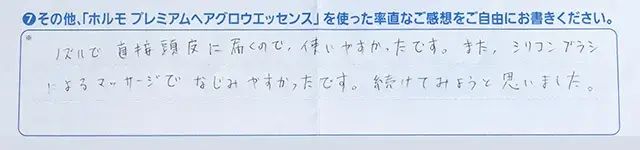 ❼その他、「ホルモ プレミアムヘアグロウエッセンス」を使った率直なご感想をご自由にお書きください。
※
ノズルで直接頭皮に届くので、使いやすかったです。また、シリコンブラシ
によるマッサージでなじみやすかったです。続けてみようと思いました。